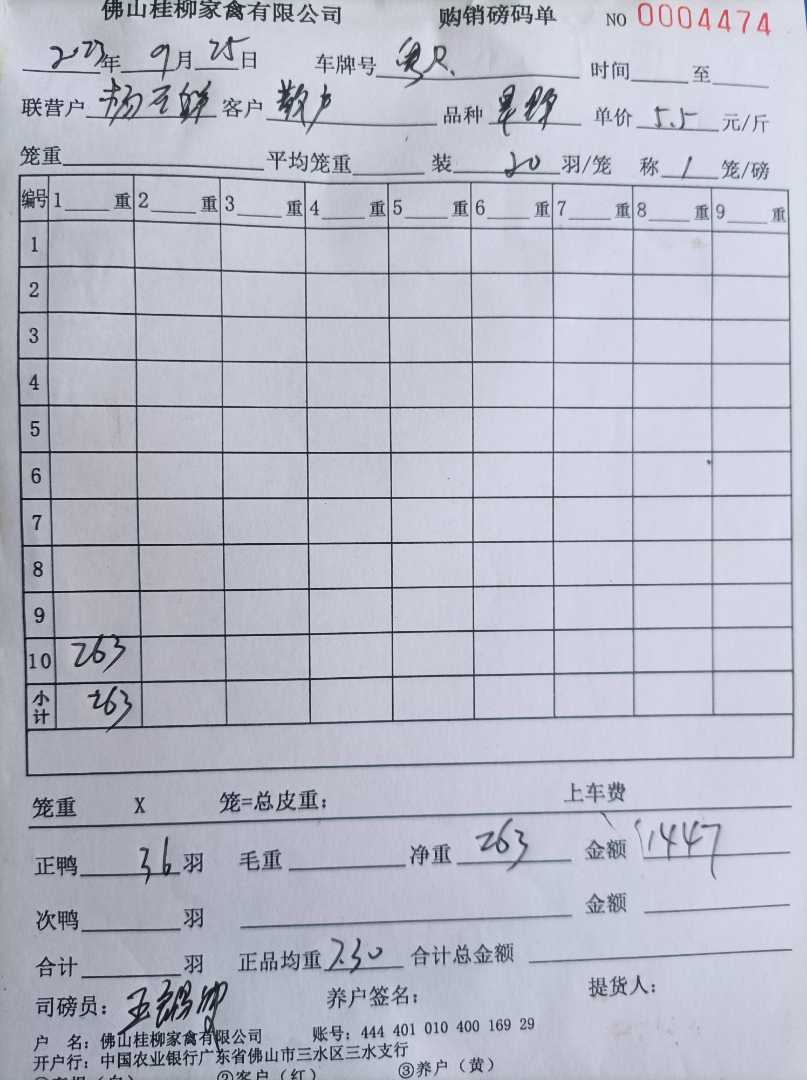 佛山桂柳家禽有限公司 购销磅码单 NO 0004474
2023年 9月 25日 车牌号 时间 至
联营户 杨 鲜 客户 散户 品种 单价 5.5 元/斤
笼重 平均笼重 装 20 羽/笼 称 1 笼/磅
编号 1 重 2 重 3 重 4 重 5 重 6 重 7 重 8 重 9 重
1
2
3
4
5
6
7
8
9
10 263
小计 263
笼重 X 笼=总皮重： 上车费
正鸭 36 羽 毛重 净重 263 金额 1447
次鸭 羽 金额
合计 羽 正品均重 7.30 合计总金额
司磅员： 王 养户签名： 提货人：
户 名：佛山桂柳家禽有限公司 账号：444 401 010 400 169 29
开户行：中国农业银行广东省佛山市三水区三水支行
②客户（红） ③养户（黄）